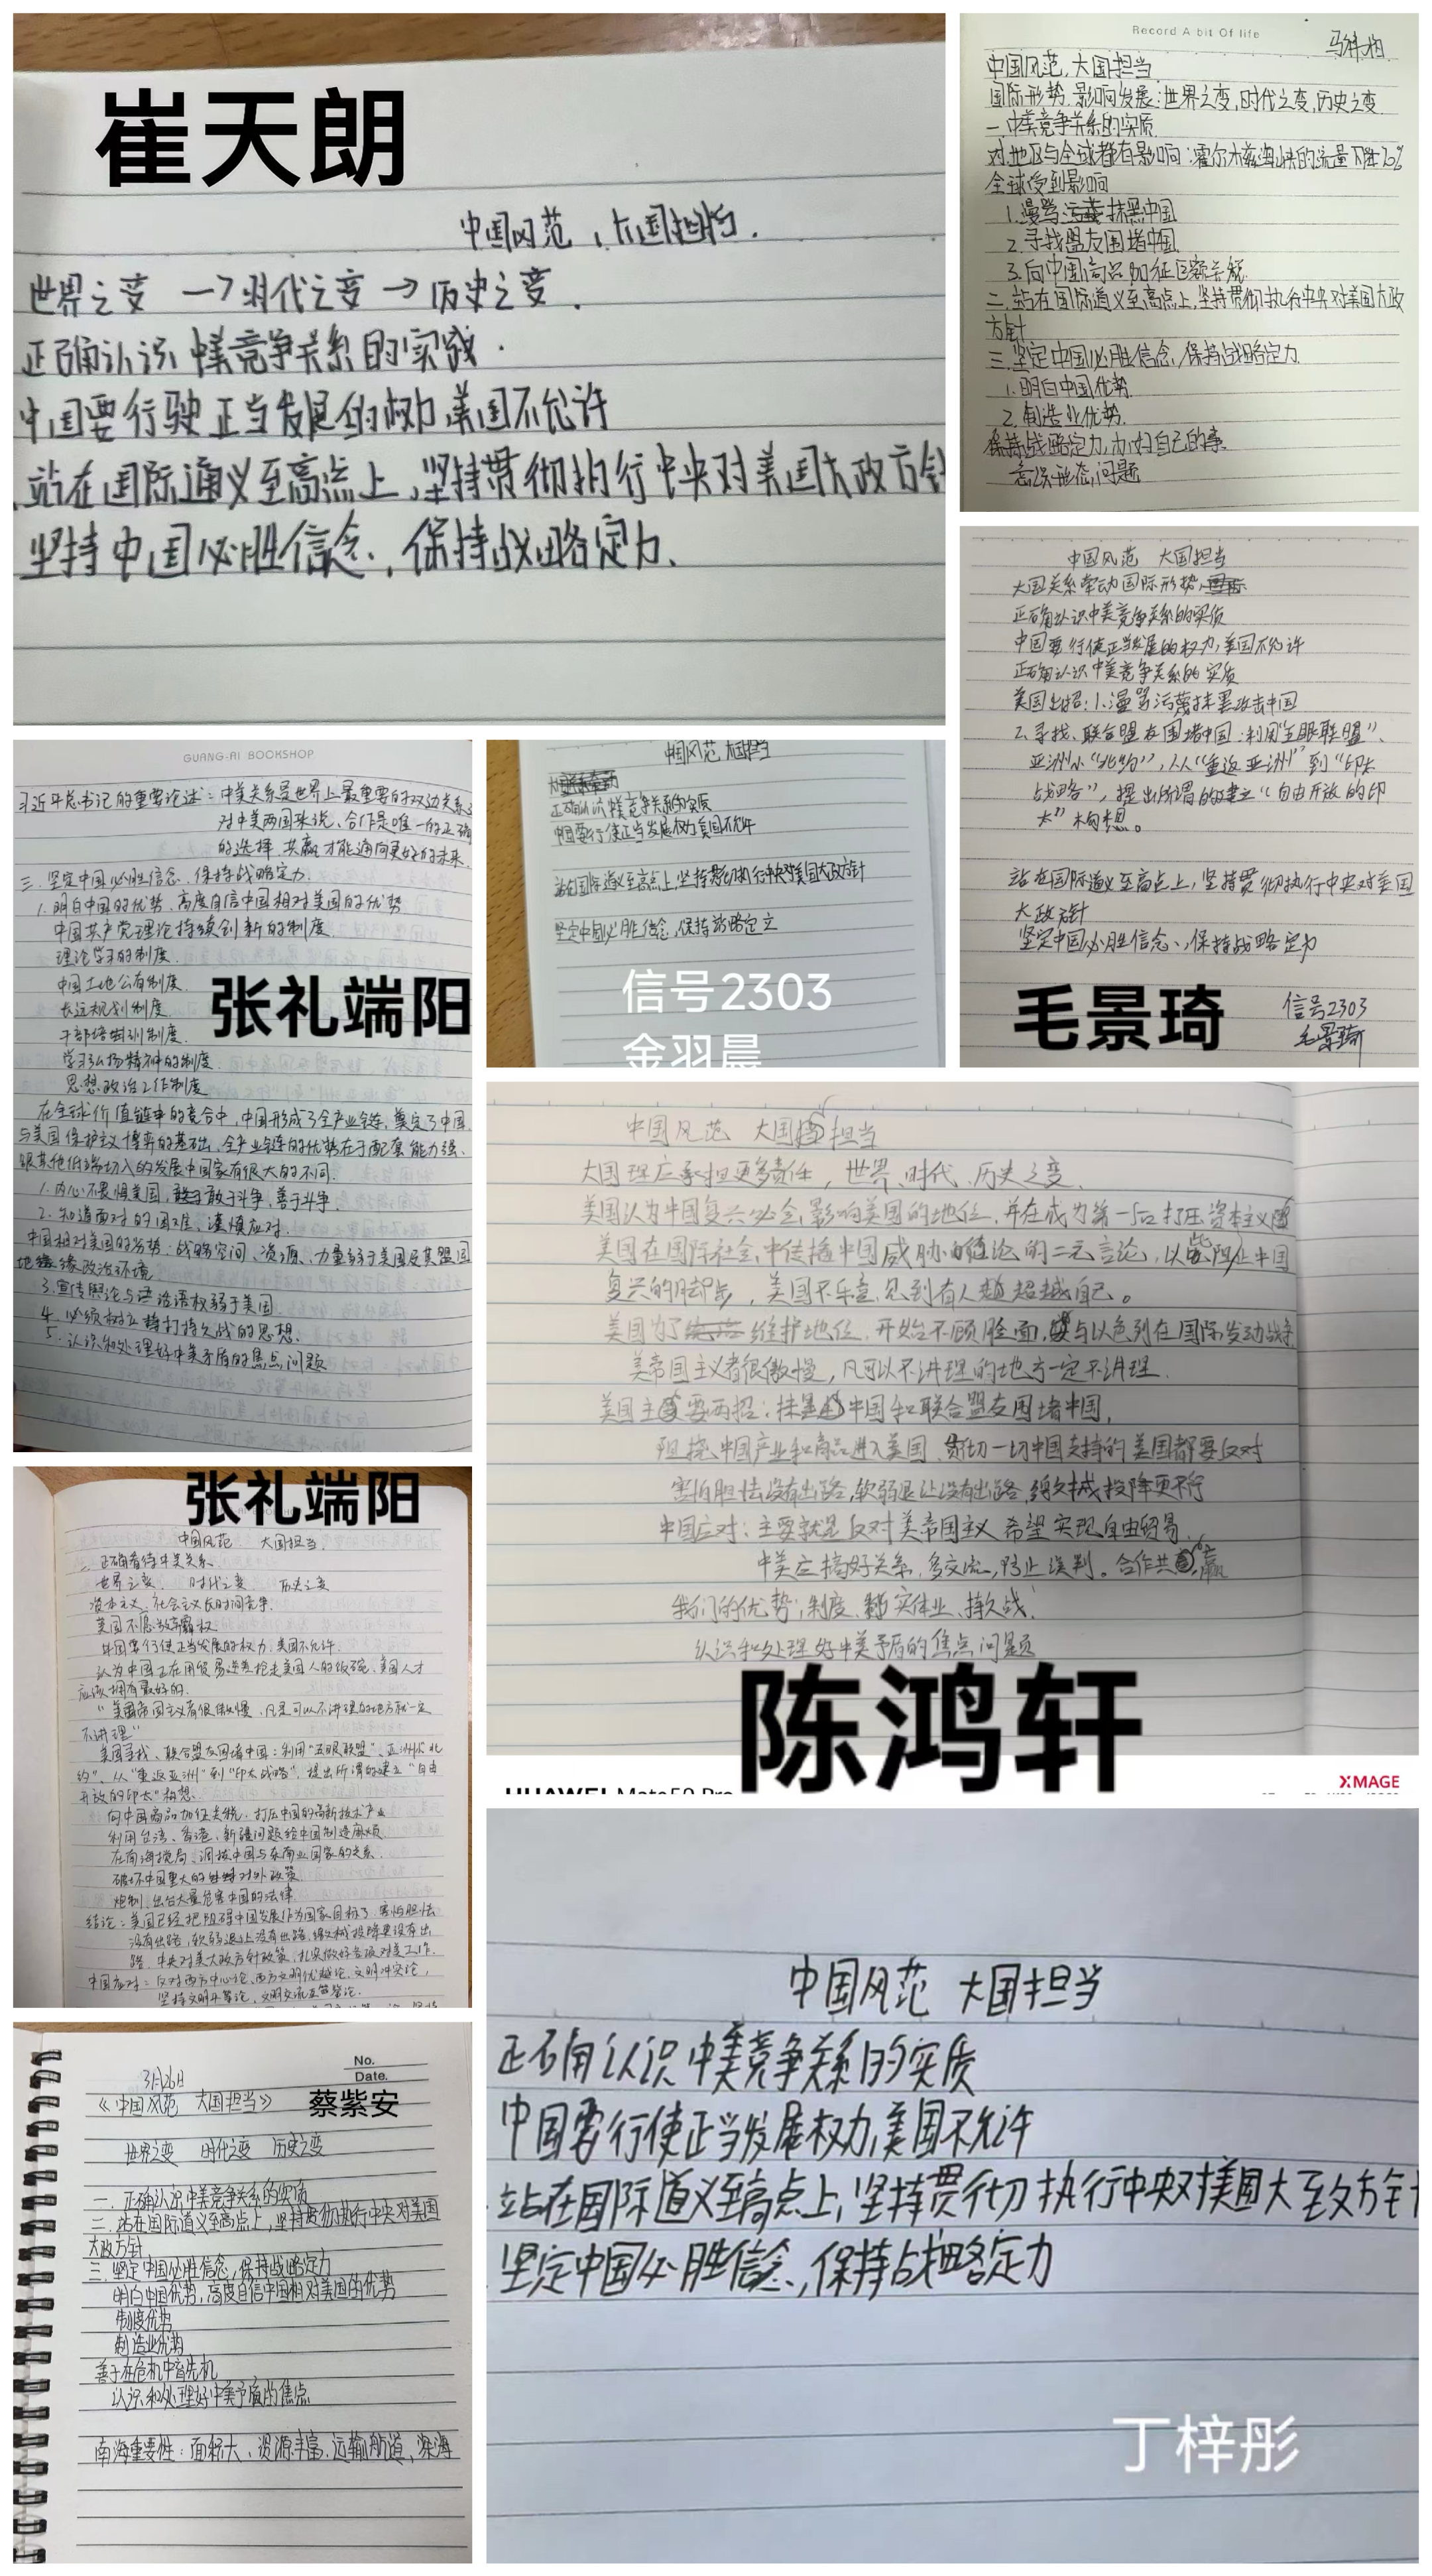 崔天朗
中国风范，大国担当.
世界之变 → 时代之变 → 历史之变.
正确认识中美竞争关系的实践.
中国要行驶正当发展的权力美国不允许
站在国际通义至高点上,坚持贯彻执行中央对美国大政方针
坚持中国必胜信念,保持战略定力.
Record A bit Of life
中国风范,大国担当
国际形势影响发展:世界之变,时代之变,历史之变
一.中美竞争关系的实质
对地区与全球都有影响:霍尔木兹海峡的流量下降70%
全球受到影响
1.漫骂抹黑中国
2.寻找盟友围堵中国
3.向中国商品加征巨额关税
二.站在国际道义至高点上,坚持贯彻执行中央对美国大政
方针
三.坚定中国必胜信念,保持战略定力
1.明白中国优势
2.制造业优势
保持战略定力,办好自己的事
意识形态问题
中国风范 大国担当
大国关系牵动国际形势
正确认识中美竞争关系的实质
中国要行使正当发展的权力,美国不允许
正确认识中美竞争关系的实质
美国出招:1.漫骂污蔑抹黑攻击中国
2.寻找、联合盟友围堵中国:利用"五眼联盟"、
亚洲小"北约",从"重返亚洲"到"印太
战略",提出所谓的建立"自由开放的印
太"构想。
站在国际道义至高点上,坚持贯彻执行中央对美国
大政方针
坚定中国必胜信念、保持战略定力
毛景琦
信号2303
毛景琦
GUANG-AI BOOKSHOP
习近平总书记的重要论述:中美关系是世界上最重要的双边关系
对中美两国来说、合作是唯一的正确
的选择,共赢才能通向更好的未来.
三.坚定中国必胜信念、保持战略定力.
1.明白中国的优势、高度自信中国相对美国的优势
中国共产党理论持续创新的制度
理论学习的制度
中国土地公有制度
长远规划制度
干部培训制度
学习弘扬精神的制度
思想政治工作制度
张礼端阳
在全球价值链中的竞合中,中国形成了全产业链,奠定了中国
与美国保护主义博弈的基础、全产业链的优势在于配套能力强、
跟其他低端切入的发展中国家有很大的不同.
1.内心不畏惧美国,敢于斗争、善于斗争.
2.知道面对的困难、谨慎应对.
中国相对美国的劣势:战略空间、资源、力量弱于美国及其盟国
地缘政治环境
3.宣传舆论与话语权弱于美国
4.必须树立打持久战的思想.
5.认识和处理好中美矛盾的焦点问题
中国风范 大国担当
正确认识中美竞争关系的实质
中国要行使正当发展权力美国不允许
站在国际道义至高点上,坚持贯彻执行中央对美国大政方针
坚定中国必胜信念,保持战略定立
信号2303
金羽晨
中国风范 大国担当
大国理应承担更多责任,世界、时代、历史之变、
美国认为中国复兴必会影响美国的地位,并在成为第一后打压资本主义
美国在国际社会中传播中国威胁论的二元言论,以此阻止中国
复兴的脚步,美国不乐意见到有人超越自己。
美国为了维护地位,开始不顾脸面,与以色列在国际发动战争
美帝国主义者很傲慢,凡可以不讲理的地方一定不讲理.
美国主要两招:抹黑中国和联合盟友围堵中国,
阻挠中国产业和商品进入美国,一切中国支持的美国都要反对
害怕胆怯没有出路,软弱退让没有出路,缴械投降更不行
中国应对:主要就是反对美帝国主义 希望实现自由贸易
中美应搞好关系,多交流,防止误判。合作共赢
我们的优势:制度、实体业、持久战,
认识和处理好中美矛盾的焦点问题
陈鸿轩
XMAGE
张礼端阳
中国风范 大国担当.
一.正确看待中美关系
世界之变 时代之变 历史之变
资本主义、社会主义长时间竞争.
美国不愿放弃霸权
中国要行使正当发展的权力、美国不允许.
认为中国正在用贸易逆差抢走美国人的饭碗、美国人才
应该拥有最好的.
"美国帝国主义者很傲慢,凡是可以不讲理的地方就一定
不讲理"
美国寻找、联合盟友围堵中国:利用"五眼联盟"、亚洲小"北
约"、从"重返亚洲"到"印太战略"、提出所谓的建立"自由
开放的印太"构想.
向中国商品加征关税、打压中国的高新技术产业
利用台湾、香港、新疆问题给中国制造麻烦
在南海搅局、调拨中国与东南亚国家的关系.
破坏中国重大的对外政策
炮制、出台大量危害中国的法律.
结论:美国已经把阻碍中国发展作为国家目标了.害怕胆怯
没有出路,软弱退让没有出路,缴械投降更没有出
路.中央对美大政方针政策,扎实做好各项对美工作.
中国应对:反对西方中心论、西方文明优越论、文明冲突论,
坚持文明平等论、文明交流互鉴论.
No.
Date.
3月26日
《中国风范 大国担当》
蔡紫安
世界之变 时代之变 历史之变
一.正确认识中美竞争关系的实质
二.站在国际道义至高点上,坚持贯彻执行中央对美国
大政方针
三.坚定中国必胜信念,保持战略定力
明白中国优势,高度自信中国相对美国的优势
制度优势
制造业优势
善于在危机中育先机
认识和处理好中美矛盾的焦点
南海重要性:面积大、资源丰富、运输航道、深海
中国风范 大国担当
正确认识中美竞争关系的实质
中国要行使正当发展权力,美国不允许
站在国际道义至高点上,坚持贯彻执行中央对美国大政方针
坚定中国必胜信念,保持战略定力
丁梓彤